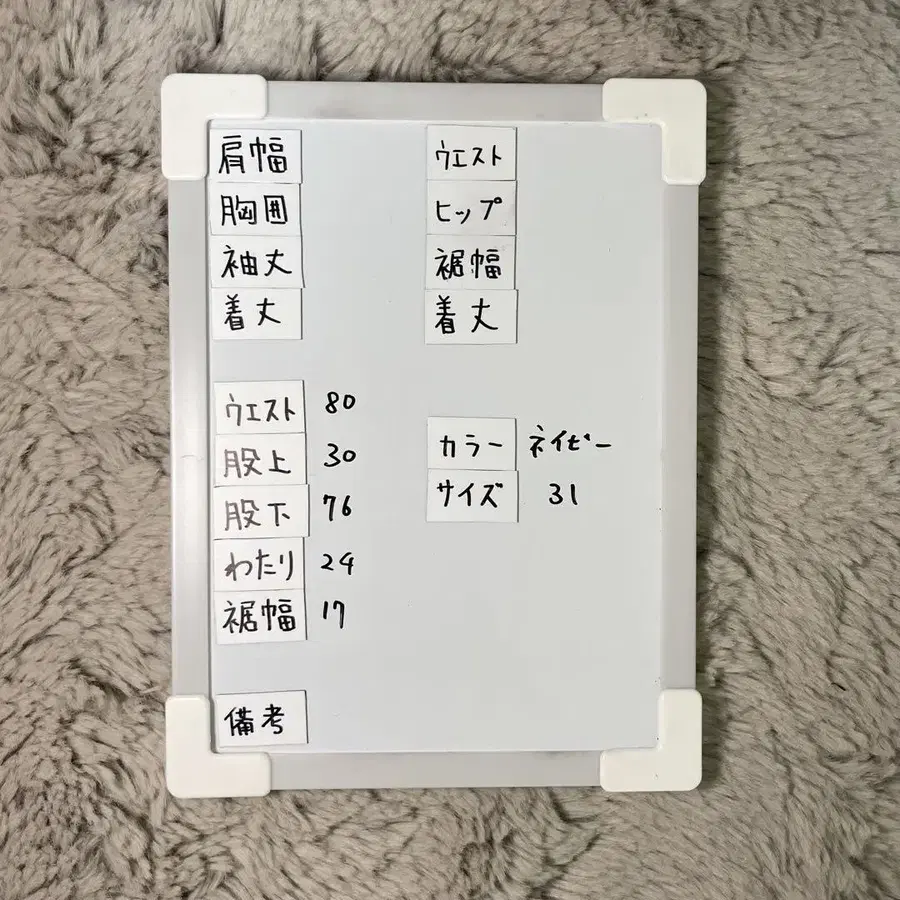 肩幅
胸囲
袖丈
着丈
ウエスト
ヒップ
裾幅
着丈
ウエスト 80
股上 30
股下 76
わたり 24
裾幅 17
カラー ネイビー
サイズ 31
備考